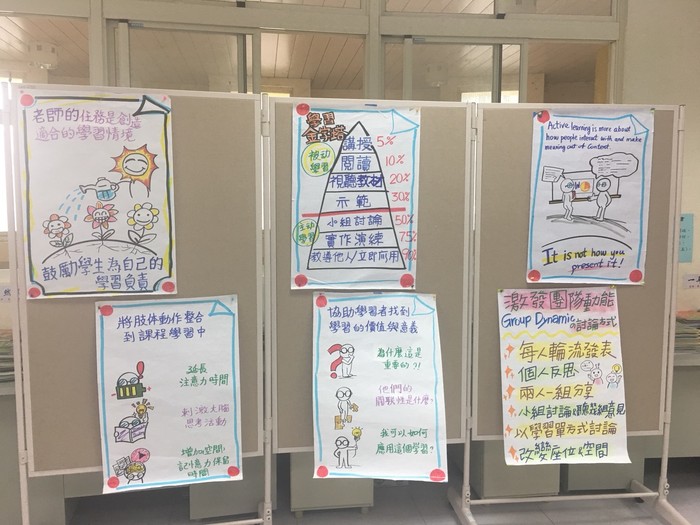 老師的任務是創造
適合的學習情境
鼓勵學生為自己的
學習負責
學習
金字塔
被动
學習
講授 5%
閱讀 10%
視聽教材 20%
示範 30%
主动
學習
小組討論 50%
實作演練 75%
教導他人/立即应用 90%
Active learning is more about
how people interact with and make
meaning out of content.
It is not how you
present it!
將肢体動作整合
到課程學習中
延長
注意力時間
刺激大腦
思考活動
增加空間、
記憶力保留
時間
協助學習者找到
學習的價值與意義
為什麼這是
重要的?!
他們的
關聯性是什麼?
我可以如何
應用這個學習?
激發團隊動能
Group Dynamic的討論方式
每人輪流發表
個人反思
兩人一組分享
小組討論
以學習單方式討論
改變座位&空間